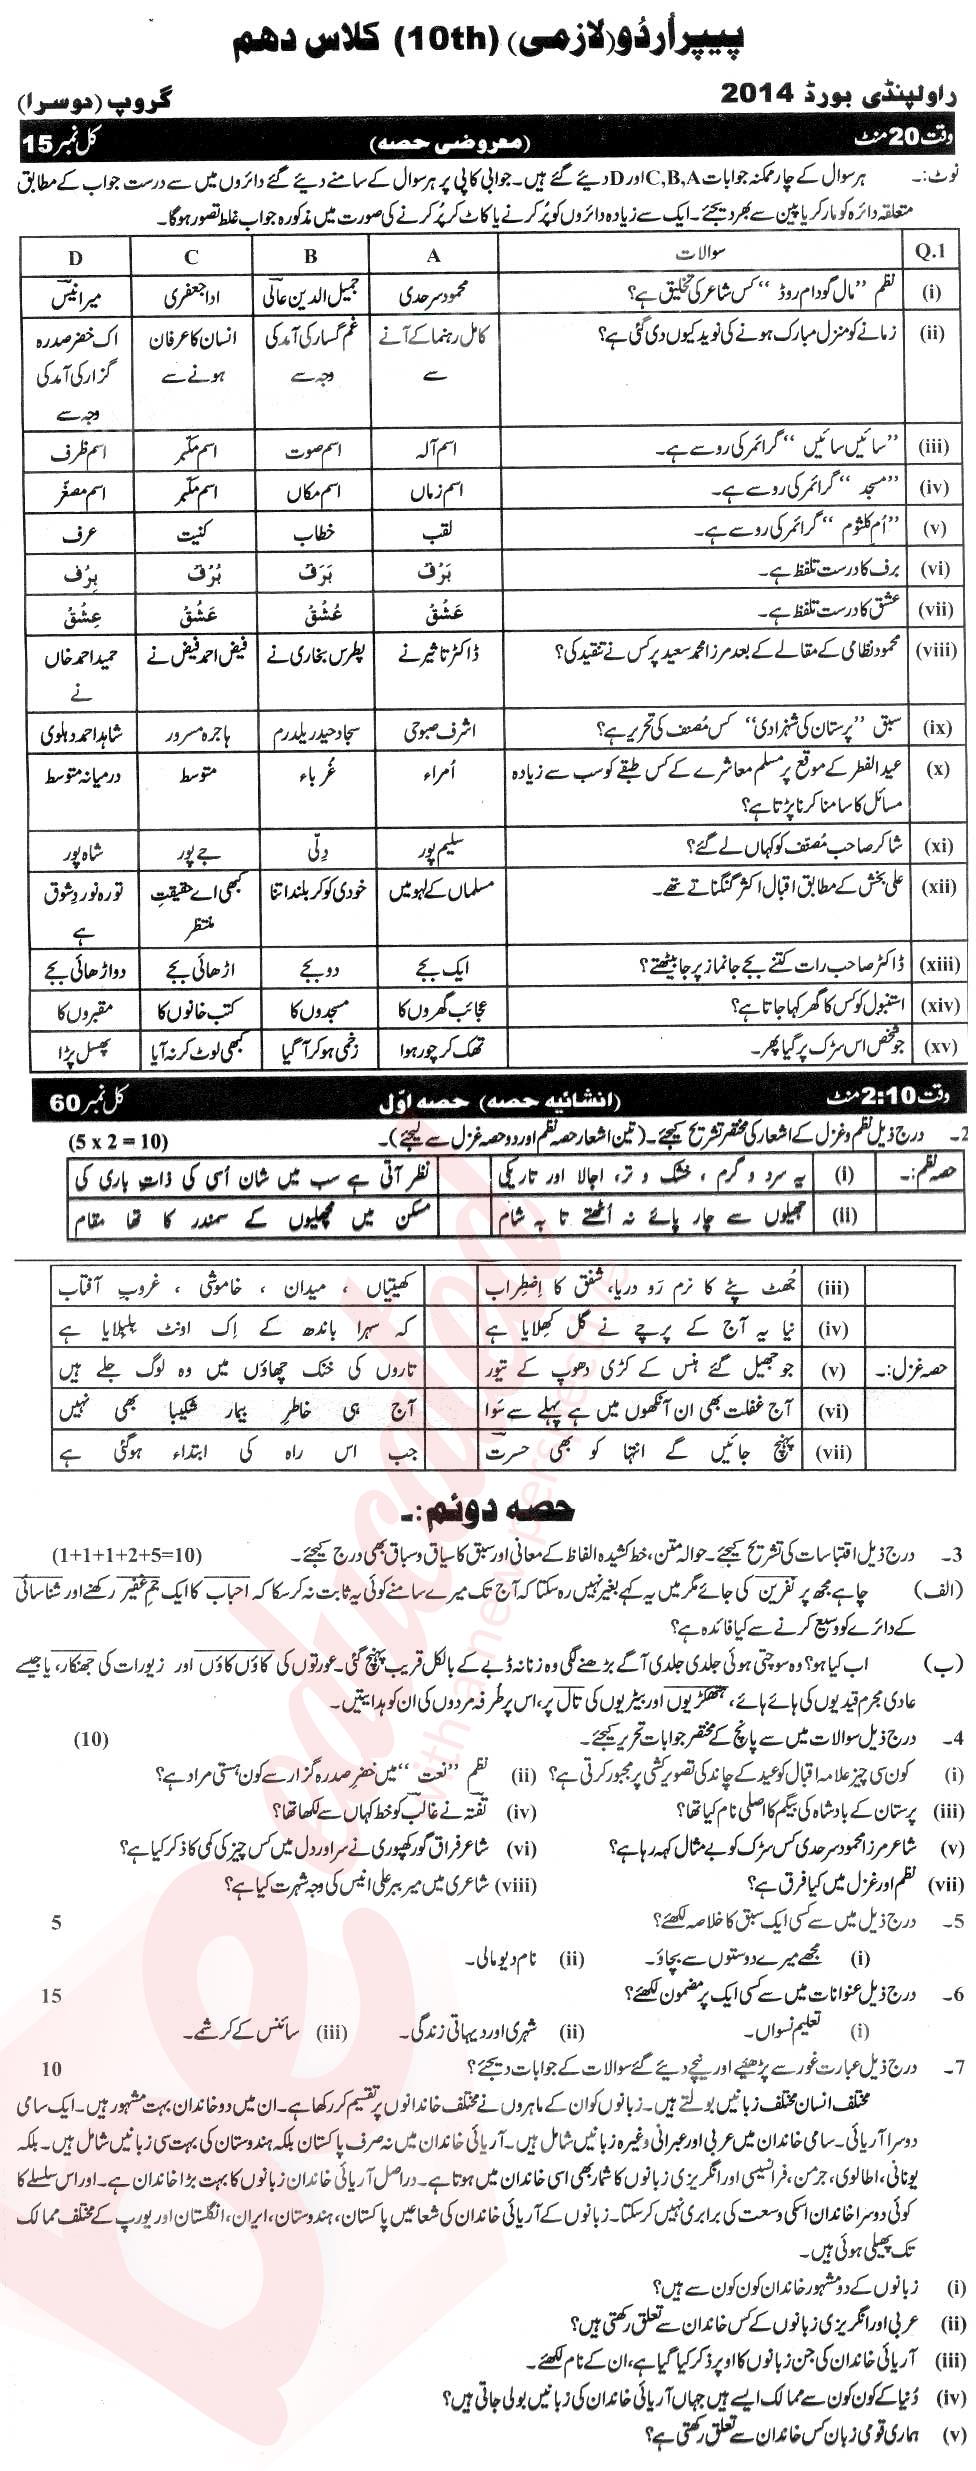 پیپر اُردُو (لازمی) (10th) کلاس دھم
راولپنڈی بورڈ 2014 گروپ (دوسرا)
وقت 20 منٹ (معروضی حصہ) کل نمبر 15
نوٹ:۔ ہر سوال کے چار ممکنہ جوابات C,B,A اور D دیئے گئے ہیں۔ جوابی کاپی پر ہر سوال کے سامنے دیئے گئے دائروں میں سے درست جواب کے مطابق
متعلقہ دائرہ کو مارکر یا پین سے بھر دیجئے۔ ایک سے زیادہ دائروں کو پُر کرنے یا کاٹ کر پُر کرنے کی صورت میں مذکورہ جواب غلط تصور ہوگا۔
Q.1 سوالات A B C D
(i) نظم ‘‘مال گودام روڈ’’ کس شاعر کی تخلیق ہے؟ محمود سرحدی جمیل الدین عالی ادا جعفری میر انیس
(ii) زمانے کو منزل مبارک ہونے کی نوید کیوں دی گئی ہے؟ کامل رہنما کے آنے سے غم گسار کی آمد کی وجہ سے انسان کا عرفان ہونے سے اک خضر صدرہ گزار کی آمد کی وجہ سے
(iii) ‘‘سائیں سائیں’’ گرائمر کی رو سے ہے۔ اسم آلہ اسم صوت اسم مکبّر اسم ظرف
(iv) ‘‘مسجد’’ گرائمر کی رو سے ہے۔ اسم زماں اسم مکاں اسم مکبّر اسم مصغّر
(v) ‘‘اُم کلثوم’’ گرائمر کی رو سے ہے۔ لقب خطاب کنیت عرف
(vi) برف کا درست تلفظ ہے۔
(vii) عشق کا درست تلفظ ہے۔
(viii) محمود نظامی کے مقالے کے بعد مرزا محمد سعید پر کس نے تنقید کی؟ ڈاکٹر تاثیر نے پطرس بخاری نے فیض احمد فیض نے حمید احمد خاں نے
(ix) سبق ‘‘پرستان کی شہزادی’’ کس مُصنف کی تحریر ہے؟ اشرف صبوحی سجاد حیدر یلدرم ہاجرہ مسرور شاہد احمد دہلوی
(x) عید الفطر کے موقع پر مسلم معاشرے کے کس طبقے کو سب سے زیادہ مسائل کا سامنا کرنا پڑتا ہے؟ اُمراء غُرباء متوسط درمیانہ متوسط
(xi) شاکر صاحب مُصنّف کو کہاں لے گئے؟ سلیم پور دِلّی جے پور شاہ پور
(xii) علی بخش کے مطابق اقبال اکثر گنگناتے تھے۔ مسلماں کے لہو میں خودی کو کر بلند اتنا کبھی اے حقیقتِ منتظر تو رہ نوردِ شوق ہے
(xiii) ڈاکٹر صاحب رات کتنے بجے جانماز پر جا بیٹھتے؟ ایک بجے دو بجے اڑھائی بجے دو اڑھائی بجے
(xiv) استنبول کو کس کا گھر کہا جاتا ہے؟ عجائب گھروں کا مسجدوں کا کتب خانوں کا مقبروں کا
(xv) جو شخص اس سڑک پر گیا پھر۔ تھک کر چور ہوا زخمی ہو کر آ گیا کبھی لوٹ کر نہ آیا پھسل پڑا
وقت 2:10 منٹ (انشائیہ حصہ) حصہ اوّل کل نمبر 60
2۔ درج ذیل نظم و غزل کے اشعار کی مختصر تشریح کیجئے۔ (تین اشعار حصہ نظم اور دو حصہ غزل سے لیجئے)۔ (5 x 2 = 10)
حصہ نظم:۔ (i) یہ سرد و گرم ، خشک و تر، اجالا اور تاریکی نظر آتی ہے سب میں شان اُسی کی ذاتِ باری کی
(ii) جھیلوں سے چار پائے نہ اُٹھتے تا بہ شام مسکن میں مچھلیوں کے سمندر کا تھا مقام
(iii) جُھٹ پٹے کا نرم رَو دریا، شفق کا اِضطِراب کھیتیاں ، میدان ، خاموشی ، غروبِ آفتاب
(iv) نیا یہ آج کے پرچے نے گل کھلایا ہے کہ سہرا باندھ کے اِک اونٹ بلبلایا ہے
حصہ غزل:۔ (v) جو جھیل گئے ہنس کے کڑی دھوپ کے تیور تاروں کی خنک چھاؤں میں وہ لوگ جلے ہیں
(vi) آج غفلت بھی ان آنکھوں میں ہے پہلے سے سَوا آج ہی خاطرِ بیمار شکیبا بھی نہیں
(vii) پہنچ جائیں گے انتہا کو بھی حسرت جب اس راہ کی ابتداء ہوگئی ہے
حصہ دوئم:۔
3۔ درج ذیل اقتباسات کی تشریح کیجئے۔ حوالہ متن، خط کشیدہ الفاظ کے معانی اور سبق کا سیاق و سباق بھی درج کیجئے۔ (1+1+1+2+5=10)
(الف) چاہے مجھ پر نفرین کی جائے مگر میں یہ کہے بغیر نہیں رہ سکتا کہ آج تک میرے سامنے کوئی یہ ثابت نہ کر سکا کہ احباب کا ایک جمِ غفیر رکھنے اور شناسائی
کے دائرے کو وسیع کرنے سے کیا فائدہ ہے؟
(ب) اب کیا ہو؟ وہ سوچتی ہوئی جلدی جلدی آگے بڑھنے لگی وہ زنانہ ڈبے کے بالکل قریب پہنچ گئی۔ عورتوں کی کاؤں کاؤں اور زیورات کی جھنکار، یا جیسے
عادی مجرم قیدیوں کی ہائے ہائے، ہتھکڑیوں اور بیڑیوں کی تال پر، اس پر طُرفہ مردوں کی ان کو ہدایتیں۔
4۔ درج ذیل سوالات میں سے پانچ کے مختصر جوابات تحریر کیجئے۔ (10)
(i) کون سی چیز علامہ اقبال کو عید کے چاند کی تصویر کشی پر مجبور کرتی ہے؟ (ii) نظم ‘‘نعت’’ میں خضرِ صدرہ گزار سے کون ہستی مراد ہے؟
(iii) پرستان کے بادشاہ کی بیگم کا اصلی نام کیا تھا؟ (iv) تفتہ نے غالب کو خط کہاں سے لکھا تھا؟
(v) شاعر مرزا محمود سرحدی کس سڑک کو بے مثال کہہ رہا ہے؟ (vi) شاعر فراق گورکھپوری نے سر اور دل میں کس چیز کی کمی کا ذکر کیا ہے؟
(vii) نظم اور غزل میں کیا فرق ہے؟ (viii) شاعری میں میر ببر علی انیس کی وجہ شہرت کیا ہے؟
5۔ درج ذیل میں سے کسی ایک سبق کا خلاصہ لکھئے؟ 5
(i) مجھے میرے دوستوں سے بچاؤ۔ (ii) نام دیو مالی۔
6۔ درج ذیل عنوانات میں سے کسی ایک پر مضمون لکھئے؟ 15
(i) تعلیم نسواں۔ (ii) شہری اور دیہاتی زندگی۔ (iii) سائنس کے کرشمے۔
7۔ درج ذیل عبارت غور سے پڑھئیے اور نیچے دیئے گئے سوالات کے جوابات دیجئے؟ 10
مختلف انسان مختلف زبانیں بولتے ہیں۔ زبانوں کو ان کے ماہروں نے مختلف خاندانوں پر تقسیم کر رکھا ہے۔ ان میں دو خاندان بہت مشہور ہیں۔ ایک سامی
دوسرا آریائی۔ سامی خاندان میں عربی اور عبرانی وغیرہ زبانیں شامل ہیں۔ آریائی خاندان میں نہ صرف پاکستان بلکہ ہندوستان کی بہت سی زبانیں شامل ہیں۔ بلکہ
یونانی، اطالوی، جرمن، فرانسیسی اور انگریزی زبانوں کا شمار بھی اسی خاندان میں ہوتا ہے۔ دراصل آریائی خاندان زبانوں کا بہت بڑا خاندان ہے۔ اور اس سلسلے کا
کوئی دوسرا خاندان اسکی وسعت کی برابری نہیں کر سکتا۔ زبانوں کے آریائی خاندان کی شعاعیں پاکستان، ہندوستان، ایران، انگلستان اور یورپ کے مختلف ممالک
تک پھیلی ہوئی ہیں۔
(i) زبانوں کے دو مشہور خاندان کون کون سے ہیں؟
(ii) عربی اور انگریزی زبانوں کے کس خاندان سے تعلق رکھتی ہیں؟
(iii) آریائی خاندان کی جن زبانوں کا اوپر ذکر کیا گیا ہے، ان کے نام لکھئے۔
(iv) دُنیا کے کون کون سے ممالک ایسے ہیں جہاں آریائی خاندان کی زبانیں بولی جاتی ہیں؟
(v) ہماری قومی زبان کس خاندان سے تعلق رکھتی ہے؟